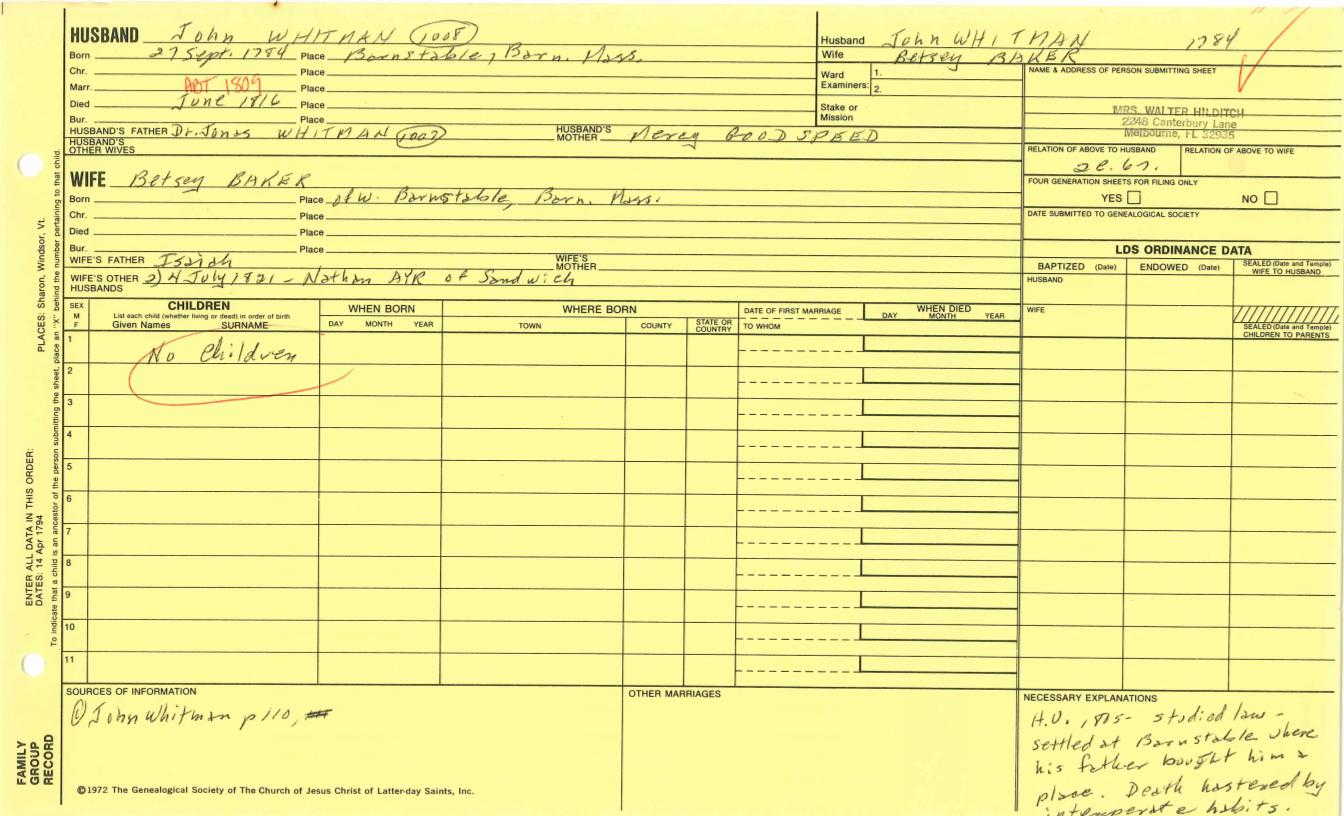 HUSBAND John WHITMAN (1008)
Born 27 Sept. 1784 Place Barnstable, Barn. Mass.
Chr. Place
Marr. ABT 1809 Place
Died June 1816 Place
Bur. Place
HUSBAND'S FATHER Dr. Jonas WHITMAN (1007) HUSBAND'S MOTHER Mercy GOODSPEED
HUSBAND'S OTHER WIVES
WIFE Betsey BAKER
Born Place of W. Barnstable, Barn. Mass.
Chr. Place
Died Place
Bur. Place
WIFE'S FATHER Isaiah WIFE'S MOTHER
WIFE'S OTHER HUSBANDS 2) 4 July 1821 - Nathan AYR of Sandwich
Husband John WHITMAN 1784
Wife Betsey BAKER
Ward Examiners: 1.
2.
Stake or Mission
NAME & ADDRESS OF PERSON SUBMITTING SHEET
MRS. WALTER HILDITCH
2248 Canterbury Lane
Melbourne, FL 32935
RELATION OF ABOVE TO HUSBAND RELATION OF ABOVE TO WIFE
FOUR GENERATION SHEETS FOR FILING ONLY
YES NO
DATE SUBMITTED TO GENEALOGICAL SOCIETY
LDS ORDINANCE DATA
BAPTIZED (Date) ENDOWED (Date) SEALED (Date and Temple) WIFE TO HUSBAND
HUSBAND
WIFE
SEALED (Date and Temple) CHILDREN TO PARENTS
SEX M F
CHILDREN
List each child (whether living or dead) in order of birth
Given Names SURNAME
WHEN BORN
DAY MONTH YEAR
WHERE BORN
TOWN COUNTY STATE OR COUNTRY
DATE OF FIRST MARRIAGE
TO WHOM
WHEN DIED
DAY MONTH YEAR
1 No Children
2
3
4
5
6
7
8
9
10
11
SOURCES OF INFORMATION
① John Whitman p 110,
OTHER MARRIAGES
NECESSARY EXPLANATIONS
H.U., studied law -
settled at Barnstable where
his father bought him a
place. Death hastened by
intemperate habits.
©1972 The Genealogical Society of The Church of Jesus Christ of Latter-day Saints, Inc.
FAMILY GROUP RECORD
ENTER ALL DATA IN THIS ORDER:
DATES: 14 Apr 1794
PLACES: Sharon, Windsor, Vt.
To indicate that a child is an ancestor of the person submitting the sheet, place an "X" behind the number pertaining to that child.